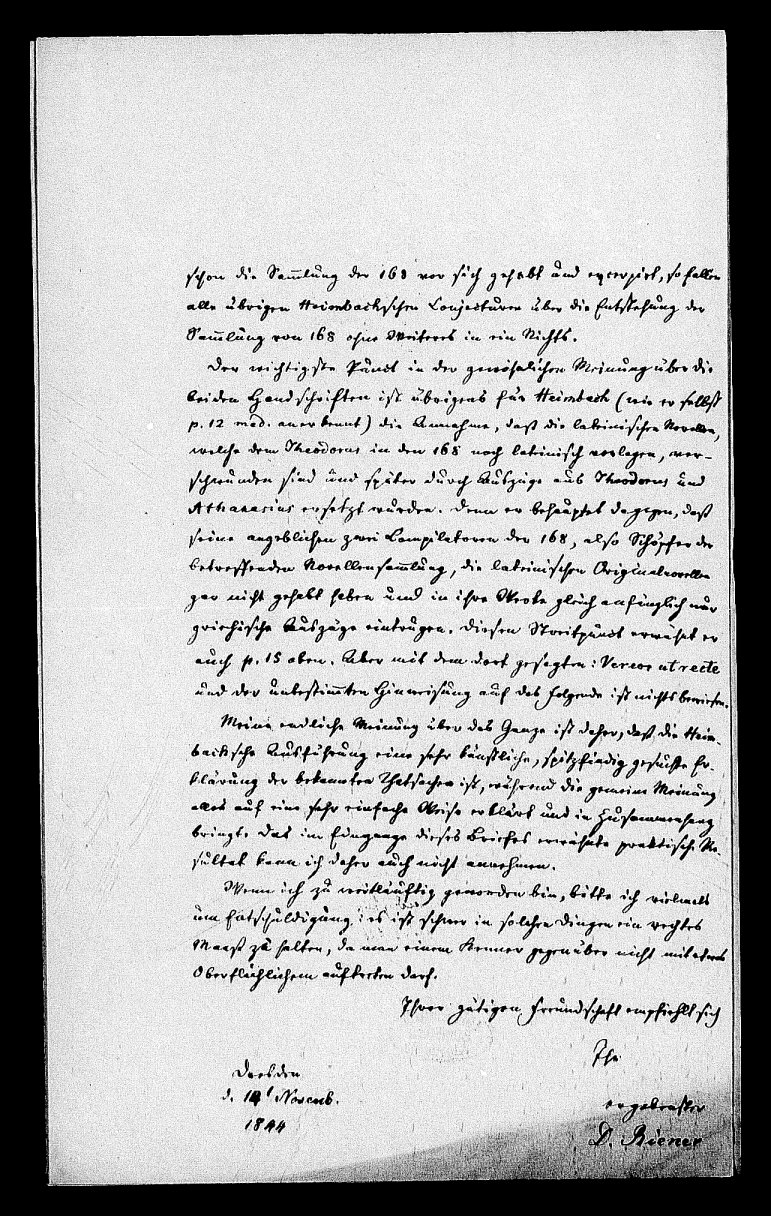 schon die Sam̅lung der 168 vor sich gehabt und excerpirt, so fallen
alle übrigen Heimbachschen Conjecturen über die Entstehung der
Sam̅lung von 168 ohne Weiteres in ein Nichts.
Der wichtigste Punct in der gewöhnlichen Meinung über die
beiden Handschriften ist übrigens für Heimbach (wie er selbst
p. 12 med. anerkennt) die Annahme, daß die lateinischen Novellen,
welche dem Theodorus in den 168 noch lateinisch vorlagen, ver-
schwunden sind und später durch Auszüge aus Theodorus und
Athanasius ersetzt wurden. Denn er behauptet dagegen, daß
seine angeblichen zwei Compilatoren der 168, also Schöpfer der
betreffenden Novellensam̅lung, die lateinischen Originalnovellen
gar nicht gehabt haben und in ihre Werke gleich anfänglich nur
griechische Auszüge eintrugen. Diesen Streitpunct erwähnt er
auch p. 15 oben. Aber mit dem dort gesagten: Vereor ut recte
und der unbestimmten Hinweisung auf das folgende ist nichts bewiesen.
Meine endliche Meinung über das Ganze ist daher, daß die Heim-
bachsche Ausführung eine sehr künstliche, spitzfindig gesuchte Er-
klärung der bekannten Thatsachen ist, während die gemeine Meinung
alles auf eine sehr einfache Weise erklärt und in Zusammenhang
bringt. Das im Eingange dieses Briefes erwähnte praktische Re-
sultat kann ich daher auch nicht annehmen.
Wenn ich zu weitläuftig geworden bin, bitte ich vielmals
um Entschuldigung: es ist schwer in solchen Dingen ein rechtes
Maaß zu halten, da man einem Kenner gegenüber nicht mit etwas
Oberflächlichem auftreten darf.
Ihrer gütigen Freundschaft empfiehlt sich
Ihr
Dresden
d. 14 Novemb.
ergebenster
1844
D. Biener